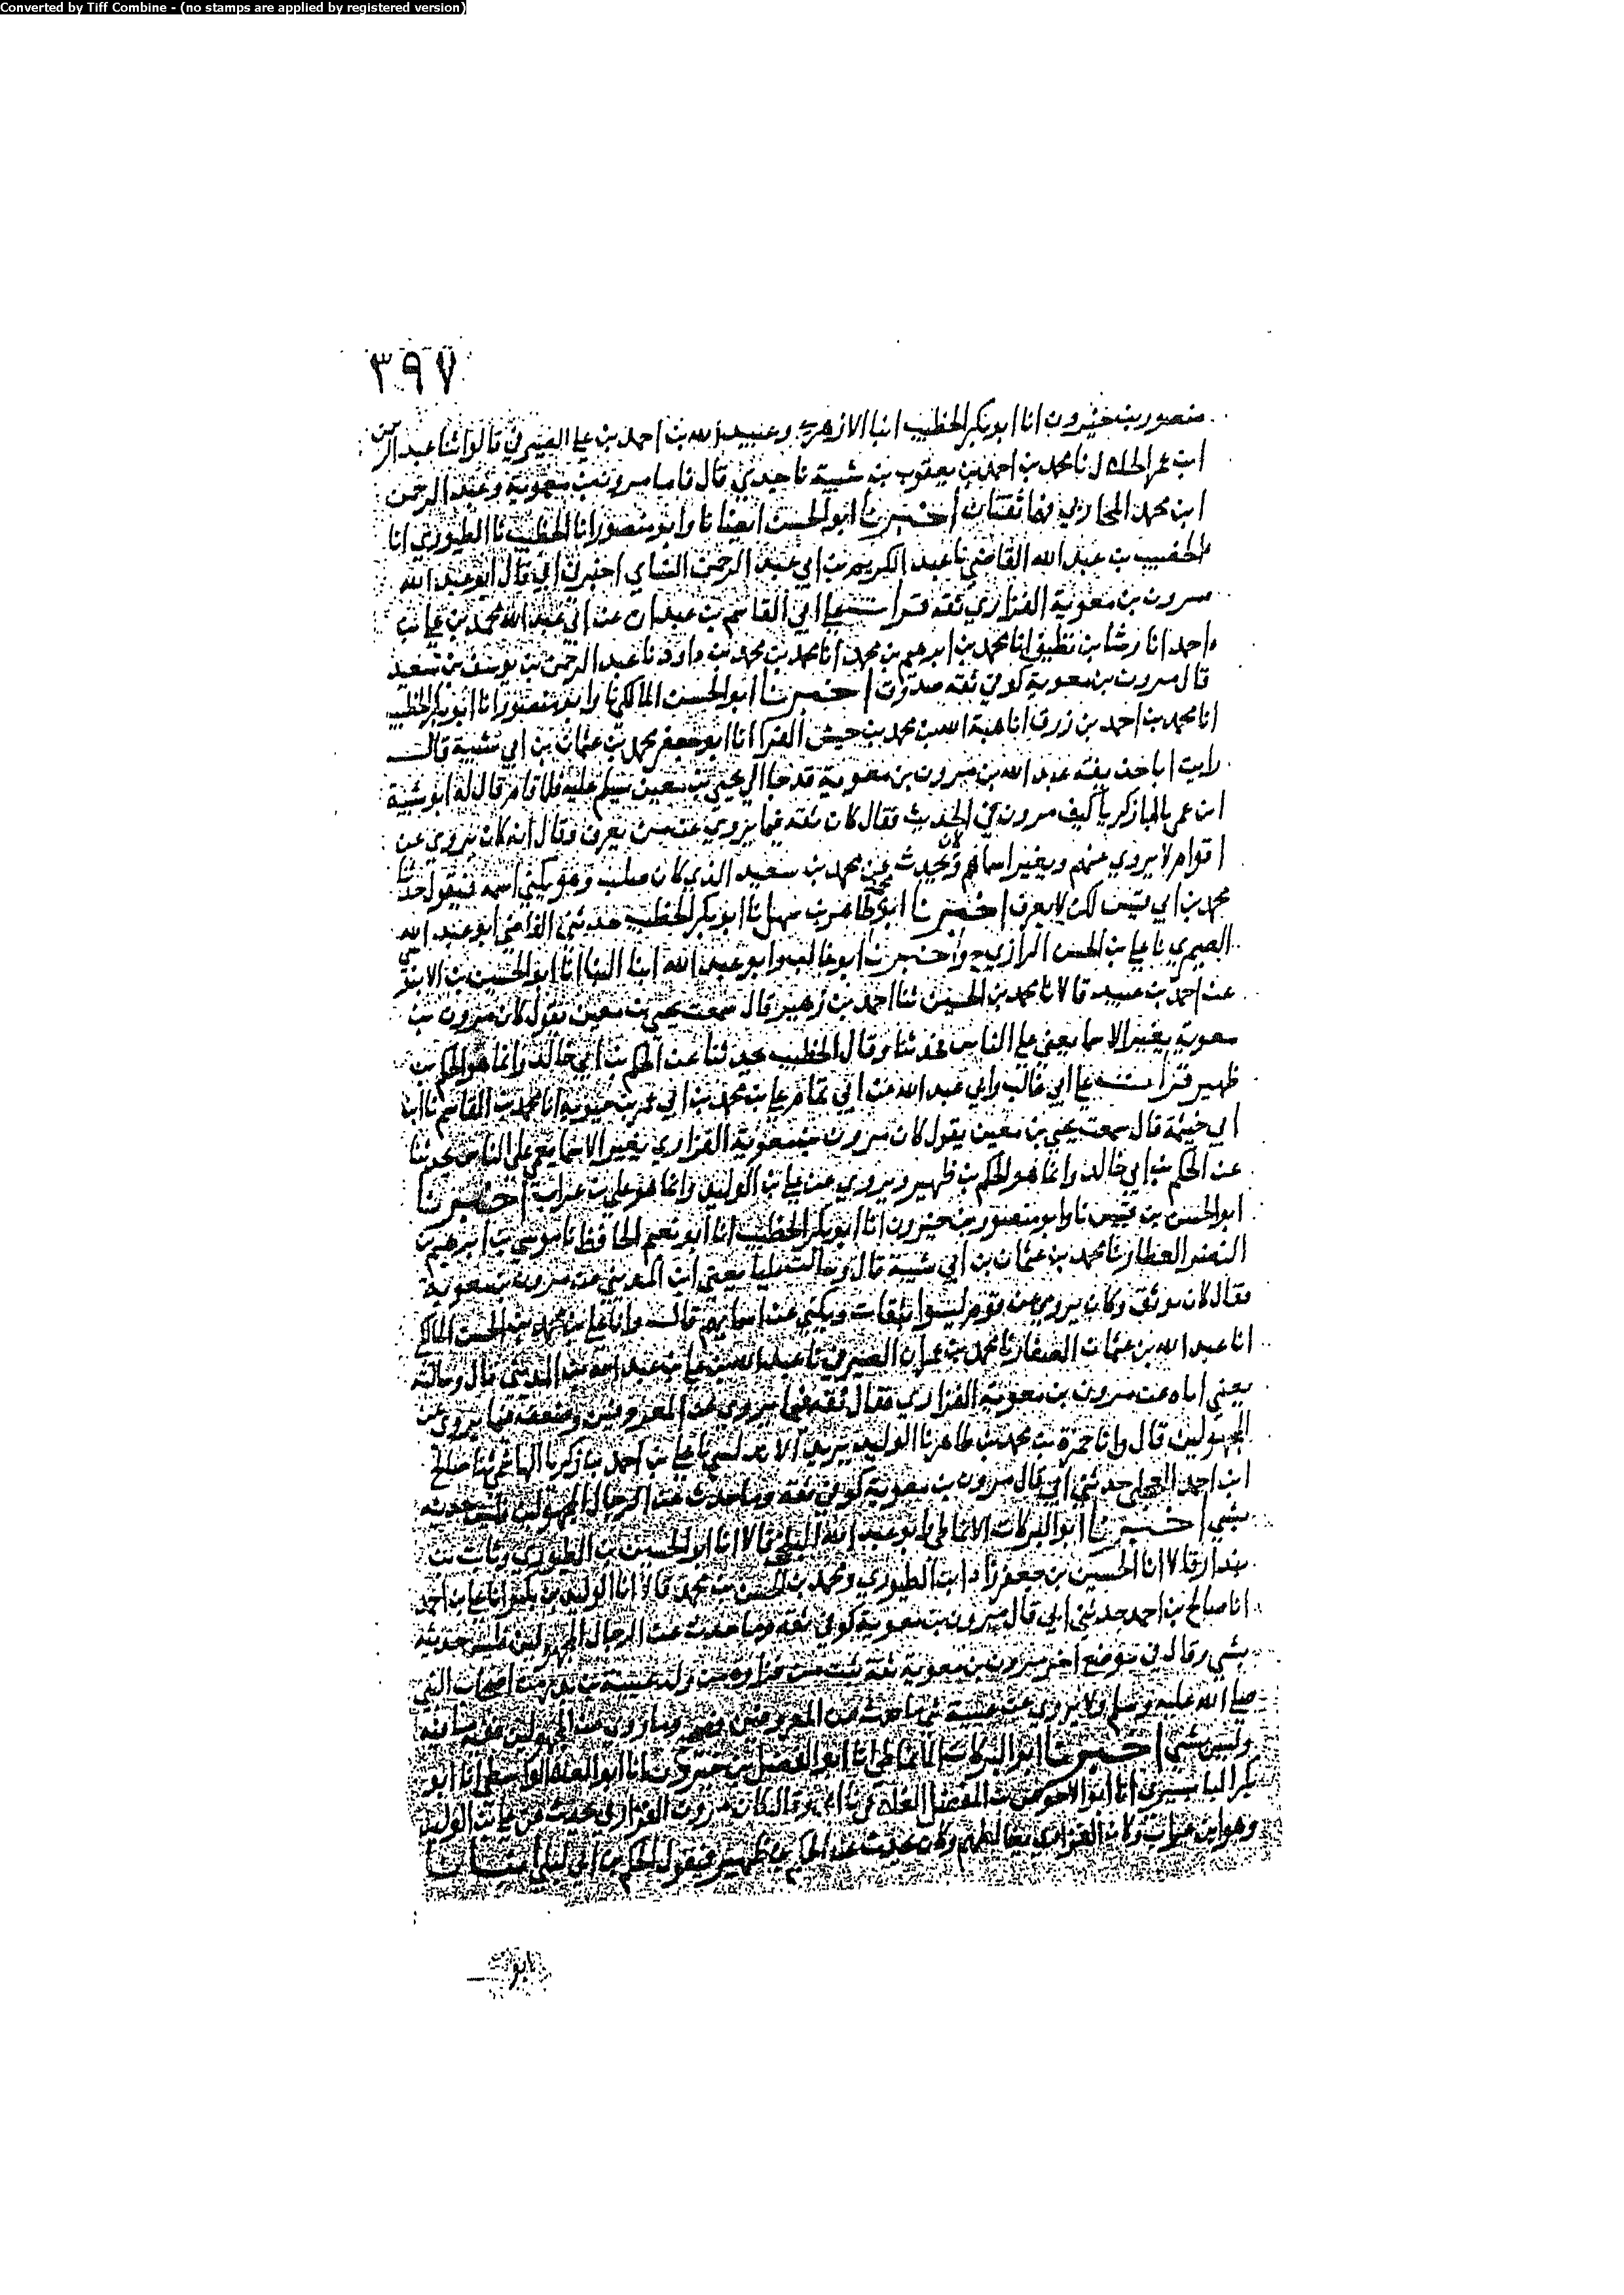 Converted by Tiff Combine - (no stamps are applied by registered version)
٣٩٧
منصور بن خيرون انا ابو بكر الخطيب انبا الازهري وعبيد الله بن احمد بن علي الصيرفي قالوا ثنا عبد الرحمن
ابن عمر الخلال نا محمد بن احمد بن يعقوب بن شيبة نا جدي قال فاما مروان بن معوية وعبد الرحمن
ابن محمد المحاربي فهما ثقتان اخبرنا ابو الحسن ايضا نا وابو منصور انا الخطيب نا الصوري انا
الخصيب بن عبد الله القاضي نا عبد الكريم بن ابي عبد الرحمن النساي اخبرني ابي قال ابو عبد الله
مرون بن معوية الفزاري ثقه قرات على ابي القاسم بن عبدان عن ابي عبد الله محمد بن علي بن
احمد انا رشا بن نظيف انا محمد بن ابرهيم بن محمد انا محمد بن محمد بن داود نا عبد الرحمن بن يوسف بن سعيد
قال مرون بن معوية كوفي ثقه صدوق اخبرنا ابو الحسن المالكي نا وابو منصور انا ابو بكر الخطيب
انا محمد بن احمد بن رزق انا هبة الله بن محمد بن حبش الفرا انا ابو جعفر محمد بن عثمان بن ابي شيبة قال
رايت ابا حذيفه عبد الله بن مرون بن معوية قد جا الى يحيى بن معين يسلم عليه فلما قام قال له ابو شيبة
ابن عمي يا ابا زكريا كيف مرون في الحديث فقال كان ثقه فيما يروي عن من يعرف وقال انه كان يروي عن
اقوام لا يروي عنهم ويغير اسماهم ويحدث عن محمد بن سعيد الذي كان صلب وهو يكني اسمه فيقول حدثنا
محمد بن ابي قيس لكن لا يعرف اخبرنا ابو طاهر بن سهل نا ابو بكر الخطيب حدثني القاضي ابو عبد الله
الصيمري نا علي بن الحسن الرازي ح واخبرنا ابو غالب وابو عبد الله ابنا البنا انا ابو الحسين بن الابنوسي
عن احمد بن عبيد قالا نا محمد بن الحسين ثنا احمد بن زهير قال سمعت يحيى بن معين يقول كان مرون بن
معوية يغير الاسما يعمي على الناس يحدثنا وقال الخطيب يحدثنا عن الحكم بن ابي خالد وانما هو الحكم بن
ظهير قرات على ابي غالب وابي عبد الله عن ابي تمام علي بن محمد بن ابي عمر بن حيويه انا محمد بن القاسم نا ابن
ابي خيثمة قال سمعت يحيى بن معين يقول كان مرون بن معوية الفزاري يغير الاسما يعمي على الناس يحدثنا
عن الحكم بن ابي خالد وانما هو الحكم بن ظهير ويروي عن علي بن الوليد وانما هو علي بن غراب اخبرنا
ابو الحسن بن قبيس نا وابو منصور بن خيرون انا ابو بكر الخطيب انا ابو نعيم الحافظ نا موسى بن ابرهيم بن
النضر العطار نا محمد بن عثمان بن ابي شيبة قال وسالت عليا يعني ابن المديني عن مرون بن معوية
فقال كان يوثق وكان يروي عن قوم ليسوا بثقات ويكني عن اسمايهم قال وانا علي بن محمد بن الحسن المالكي
انا عبد الله بن عثمان الصفار نا محمد بن عمران الصيرفي نا عبد الله بن علي بن عبد الله بن المديني قال وسالته
يعني اباه عن مرون بن معوية الفزاري فقال ثقه فيما يروي عن المعروفين وضعفه فيما يروي عن
المجهولين قال وانا حمزة بن محمد بن طاهر نا الوليد يريد الاندلسي نا علي بن احمد بن زكريا الهاشمي نا صالح
ابن احمد العجلي حدثني ابي قال مرون بن معوية كوفي ثقه وما حدث عن الرجال المجهولين فليس حديثه
بشي اخبرنا ابو البركات الانماطي وابو عبد الله البلخي قالا انا ابو الحسين بن الطيوري وثابت بن
بندار قالا انا الحسين بن جعفر زاد ابن الطيوري ومحمد بن الحسن بن محمد قالا انا الوليد بن بكير انا علي بن احمد
انا صالح بن احمد حدثني ابي قال مرون بن معوية كوفي ثقه وما حدث عن الرجال المجهولين فليس حديثه
بشي وقال في موضع اخر مرون بن معوية ثقة ثبت من فزارة من ولد عيينة بن بدر من اصحاب النبي
صلى الله عليه وسلم ولا يروي عن عيينة شي ما حدث عن المعروفين فصحيح وما روى عن المجهولين ففيه ما فيه
وليس بشي اخبرنا ابو البركات الانماطي انا ابو الفضل بن خيرون انا ابو العلا الواسطي انا ابو
بكر البابسيري انا ابو الاحوص بن المفضل الغلابي نا ابي قال كان مرون الفزاري يحدث عن علي بن الوليد
وهو ابن غراب وكان الفزاري يغالطهم وكان يحدث عن الحكم بن ظهير فيقول الحكم بن ابي ليلى انبانا
ابو